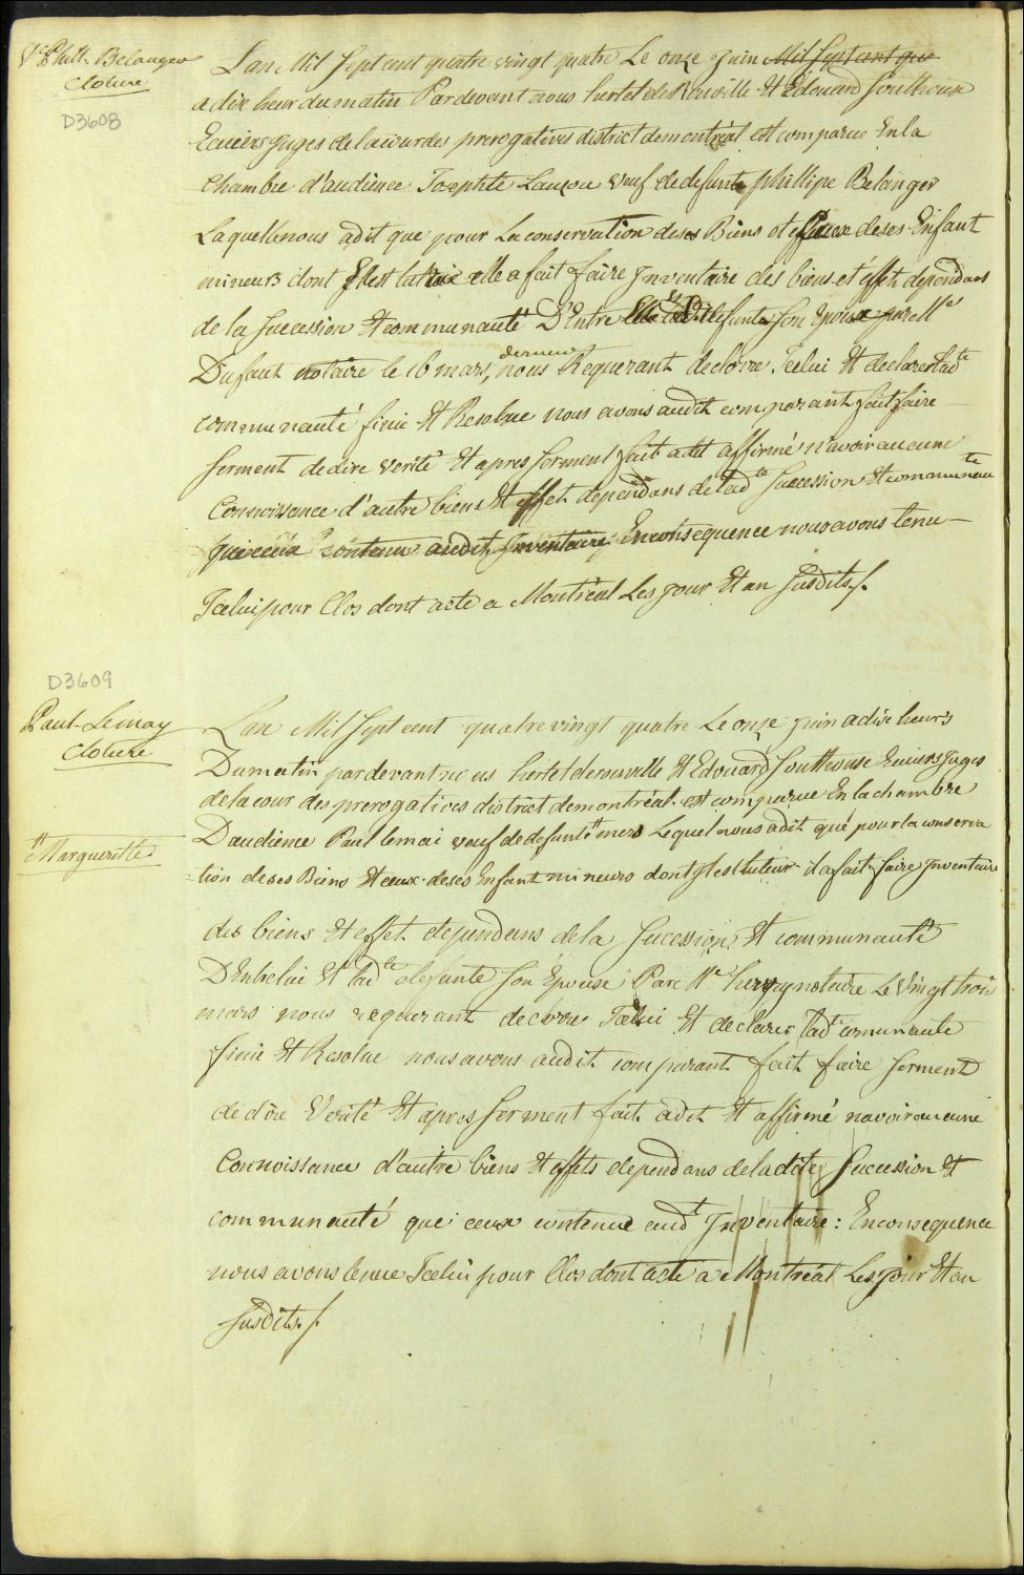 Ve Phill. Belanger
Cloture
D3608
Lan Mil Sept cent quatre vingt quatre Le onze Juin Mil Sept cent qua
a dix heur du matin Pardevant nous hertel de Rouville Et Edouard Southouse
Ecuiers Juges de la cour des prerogatives district de montréal est comparue En la
Chambre d'audience Josephte Lauzon veuf de defunt phillipe Belanger
Laquelle nous a dit que pour La conservation de ses Biens et ceux de ses Enfant
mineurs dont Elest tutrice elle a fait faire Inventaire des biens et éffets dependans
de la Succession Et communauté D'Entre Elle et led. defunt Son Epoux par Me
Dufaut notaire le 16 mars dernier, nous Requerant declore Icelui Et declarer lad.te
communauté finie Et Resolue nous avons audit comparant fait faire
Serment de dire verité Et apres Serment fait a dit affirmé n'avoir aucune
Connoissance d'autre biens Et effets dependans de lad.te Succession Et communauté
que ceux contenus audit Inventaire. En consequence nous avons tenu
Icelui pour Clos dont acte a Montréal Les jour Et an Susdits /.
D3609
Paul Lemay
Cloture
Lan Mil Sept cent quatre vingt quatre Le onze juin a dix heurs
Du matin pardevant nous hertel de rouville Et Edouard Southouse Ecuiers Juges
de la cour des prerogatives district de montréal est comparue En la chambre
D'audience Paul lemai veuf de defunte mers Lequel nous a dit qué pour la conserva
Margueritte
tion de ses Biens Et ceux de ses Enfant mineurs dont Il est tuteur il a fait faire Inventaire
des biens Et effet dependans de la Sucession Et communauté
D'Entre lui Et lad.te defunte Son Epouse Par Me notaire Le Vingt trois
mars nous requerant declorre Icelui Et declarer lad.te comunauté
finie Et Resolue nous avons audit comparant fait faire Serment
de dire Verité Et apres Serment fait a dit Et affirmé n'avoir aucune
Connoissance d'autre biens Et effets dependans de la dite Succession Et
communauté que ceux contenue aud.t Inventaire : En consequence
nous avons tenue Icelui pour Clos dont acte a Montréal Les jour Et an
Susdits /.